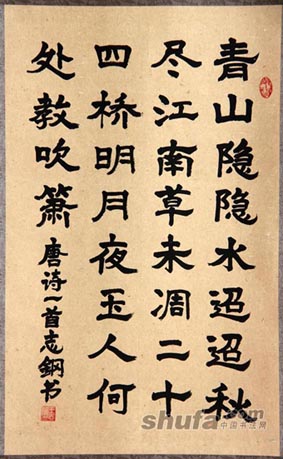 青山隐隐水迢迢秋
尽江南草未凋二十
四桥明月夜玉人何
处教吹箫唐诗一首志鋼书
shufa.com
中国书法网